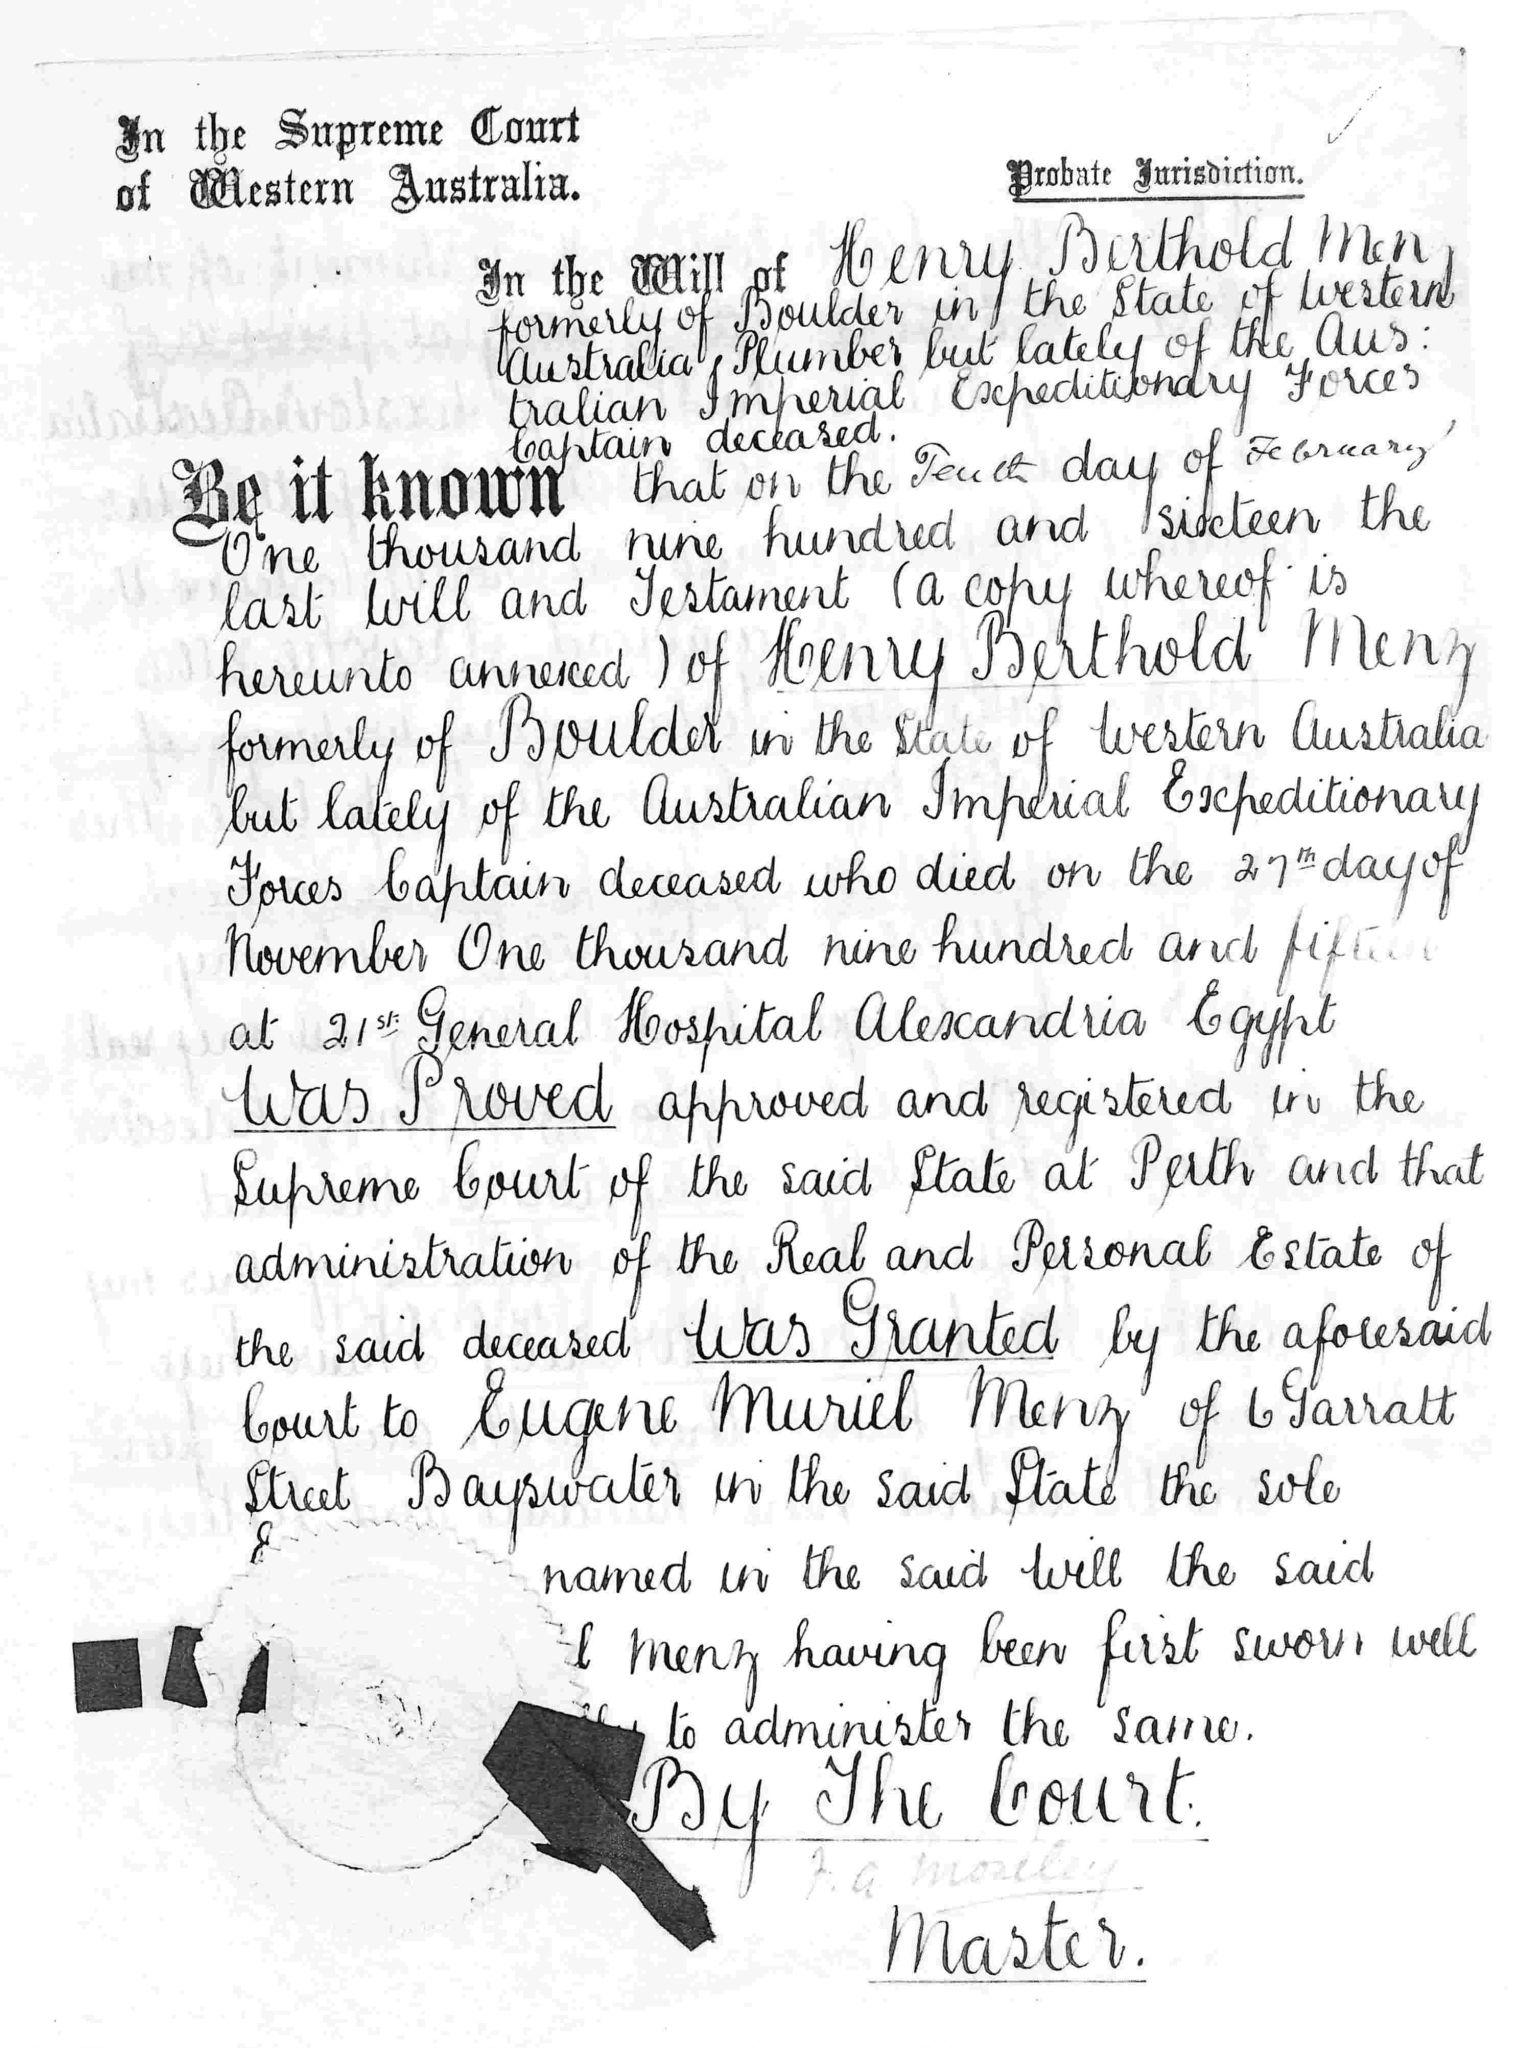 In the Supreme Court
of Western Australia.
Probate Jurisdiction.
In the Will of Henry Berthold Menz
formerly of Boulder in the State of Western
Australia, Plumber but lately of the Aus:
tralian Imperial Expeditionary Forces
Captain deceased.
Be it known that on the Tenth day of February
One thousand nine hundred and sixteen the
last Will and Testament (a copy whereof is
hereunto annexed) of Henry Berthold Menz
formerly of Boulder in the State of Western Australia
but lately of the Australian Imperial Expeditionary
Forces Captain deceased who died on the 27th day of
November One thousand nine hundred and fifteen
at 21st General Hospital Alexandria Egypt
Was Proved approved and registered in the
Supreme Court of the said State at Perth and that
administration of the Real and Personal Estate of
the said deceased Was Granted by the aforesaid
Court to Eugene Muriel Menz of 6 Garratt
Street Bayswater in the said State the sole
E named in the said Will the said
l Menz having been first sworn well
to administer the same.
By The Court.
F. A Moseley
Master.